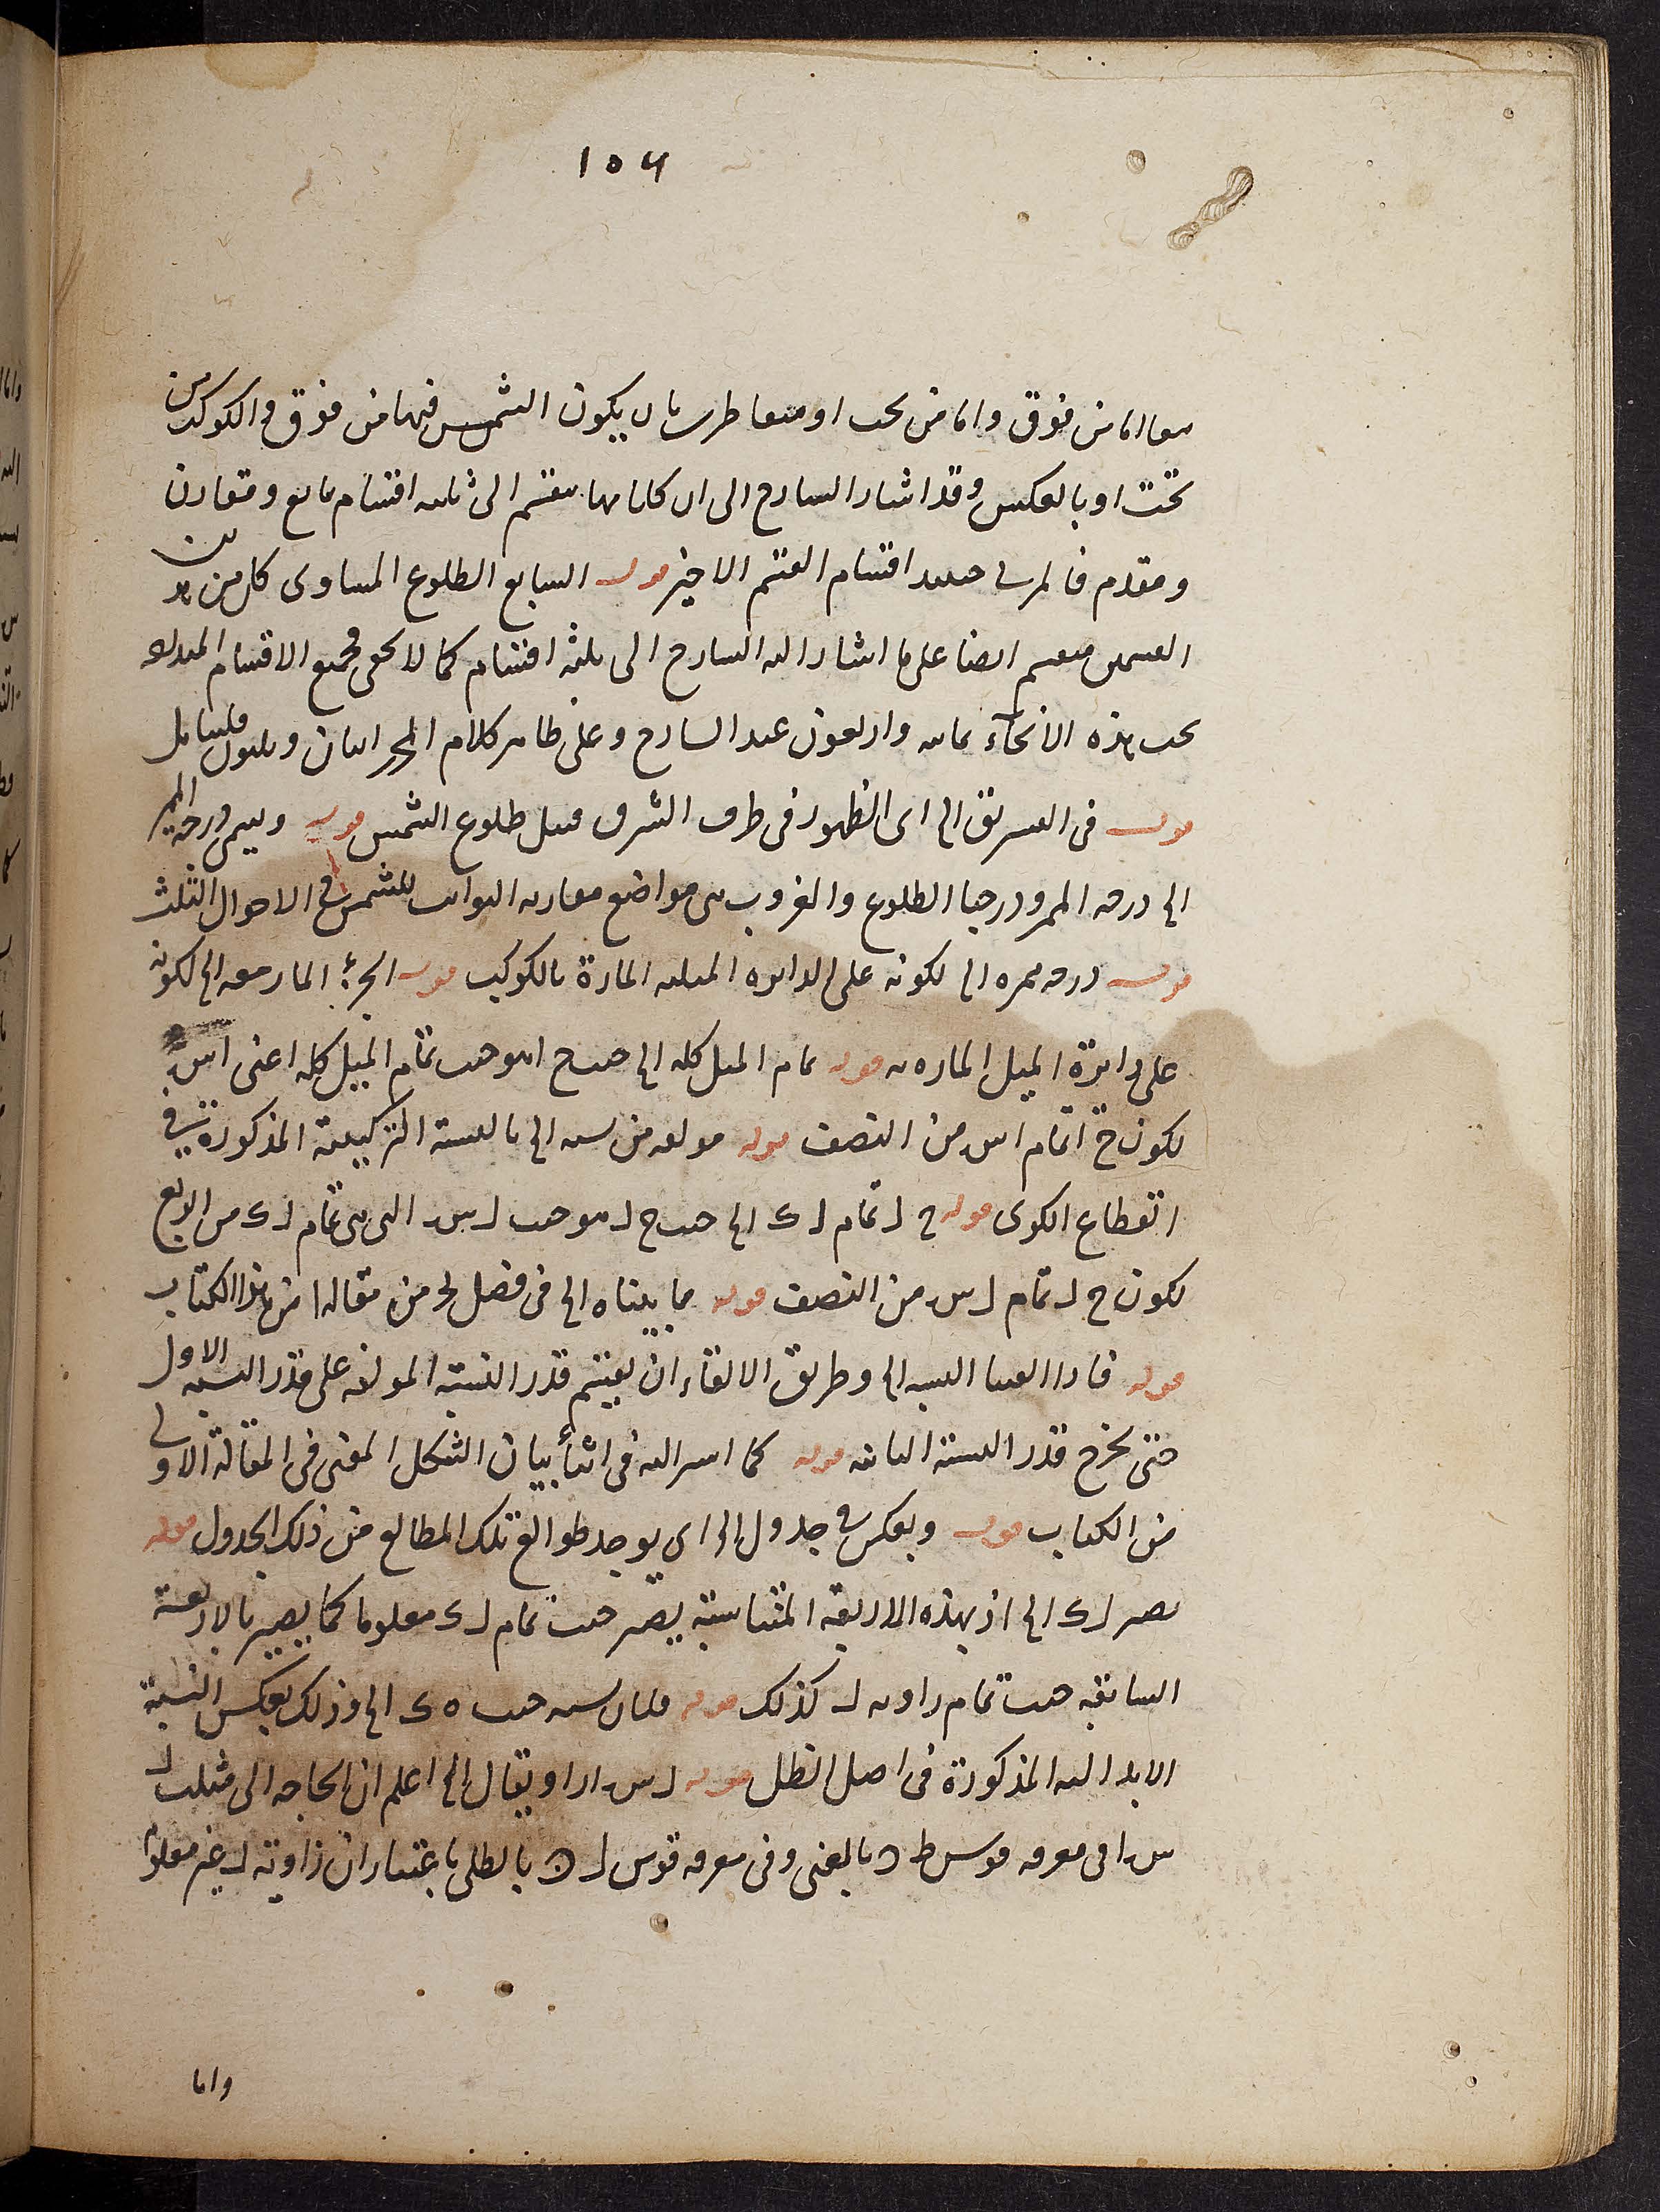 ١٥٦
معا اما من فوق واما من تحت او متعاطرين بان يكون الشمس فيهما من فوق والكوكب من
تحت او بالعكس وقد اشار الشارح الى ان كلا منها ينقسم الى ثلثة اقسام تابع ومقارن
ومقدم اقسام القسم الاخير قوله السابع الطلوع المساوى كل من
القسمين منقسم ايضا على ما اشار اليه الشارح الى ثلثة اقسام كما لا يخفى فجميع الاقسام المندرجة
تحت هذه الانحآء ثمانية واربعون عند الشارح وعلى ظاهر كلام المحرر اثنان وثلثون فليتامل
قوله فى التشريق الخ اى الظهور فى طرف الشرق قبل طلوع الشمس قوله ويسمى درجة الممر
الخ درجة الممر ودرجتا الطلوع والغروب هى مواضع مقارنة الثوابت للشمس فى الاحوال الثلث
قوله درجة ممره الخ لكونه على الدائرة الميلية المارة بالكوكب قوله الجزء المار معه الخ لكونه
على دائرة الميل المارة به قوله تمام الميل كله الخ جيب ح ا هو جيب تمام الميل كله اعنى ا س
لكون ح ا تمام ا س من النصف قوله مولفة من نسبة الخ بالنسبة التركيبية المذكورة فى
القطاع الكرى قوله ح ل تمام ل ك الخ جيب ح ل هو جيب ل س التى هى تمام ل ك من الربع
لكون ح ل تمام ل س من النصف قوله مما بيناه الخ فى فصل من مقالة ا من هذا الكتاب
قوله فاذا القينا النسبة الخ وطريق الالقاء ان يقسم قدر النسبة المولفة على قدر النسبة الاولى
حتى يخرج قدر النسبة الثانية قوله كما اشير اليه فى اثنأ بيان الشكل المغنى فى المقالة الاولى
من الكتاب قوله وبعكس فى جدول الخ اى يوجد طوالع تلك المطالع من ذلك الجدول قوله
يصير ل ك الخ اذ بهذه الاربعة المتناسبة يصير جيب تمام ل ك معلوما كما يصير بالاربعة
السابقة جيب تمام زاوية ل كذلك قوله فلان نسبة جيب ه ك الخ وذلك بعكس النسبة
الابدالية المذكورة فى اصل الظل قوله ل س ا او يقال الخ اعلم ان الحاجة الى مثلث ل
س ا فى معرفة قوس ط د بالمغنى وفى معرفة قوس ل ن بالظلى باعتبار ان زاوية ل غير معلوم
واما